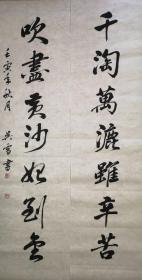 千淘萬漉雖辛苦
吹盡黃沙始到金
壬寅年秋月 吳雪書